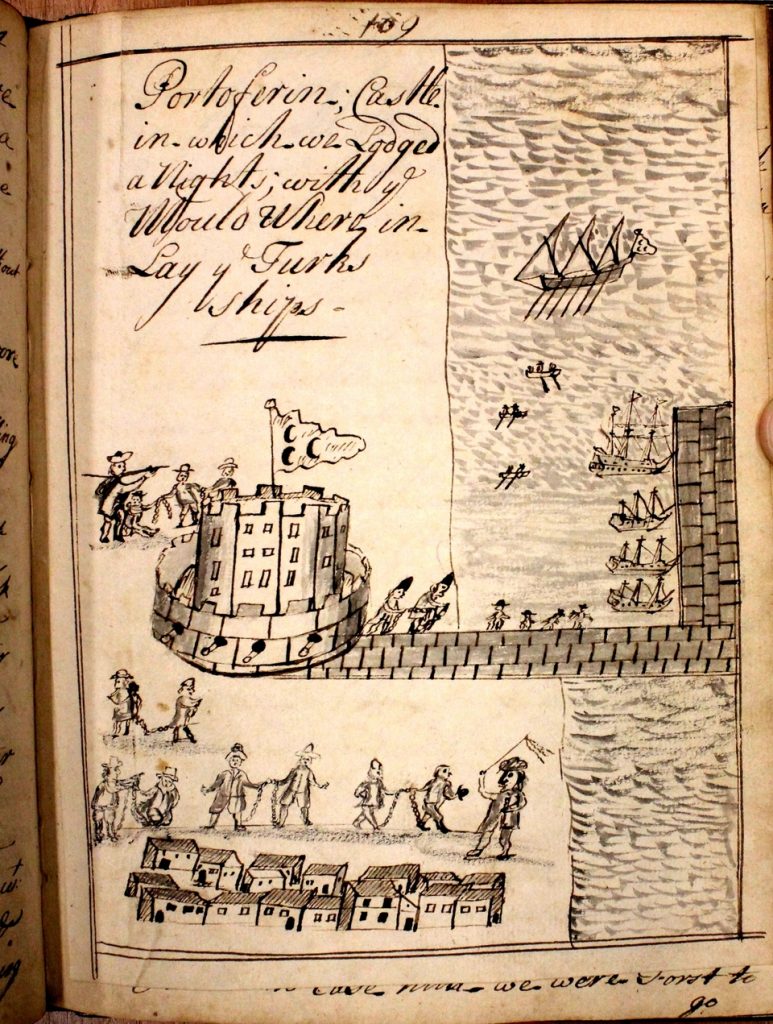 109
Portoferin; Castle
in which we Lodged
a Nights; with yᵉ
Mould Where in
Lay yᵉ Turks
ships
Cave hind we were Forst to
go